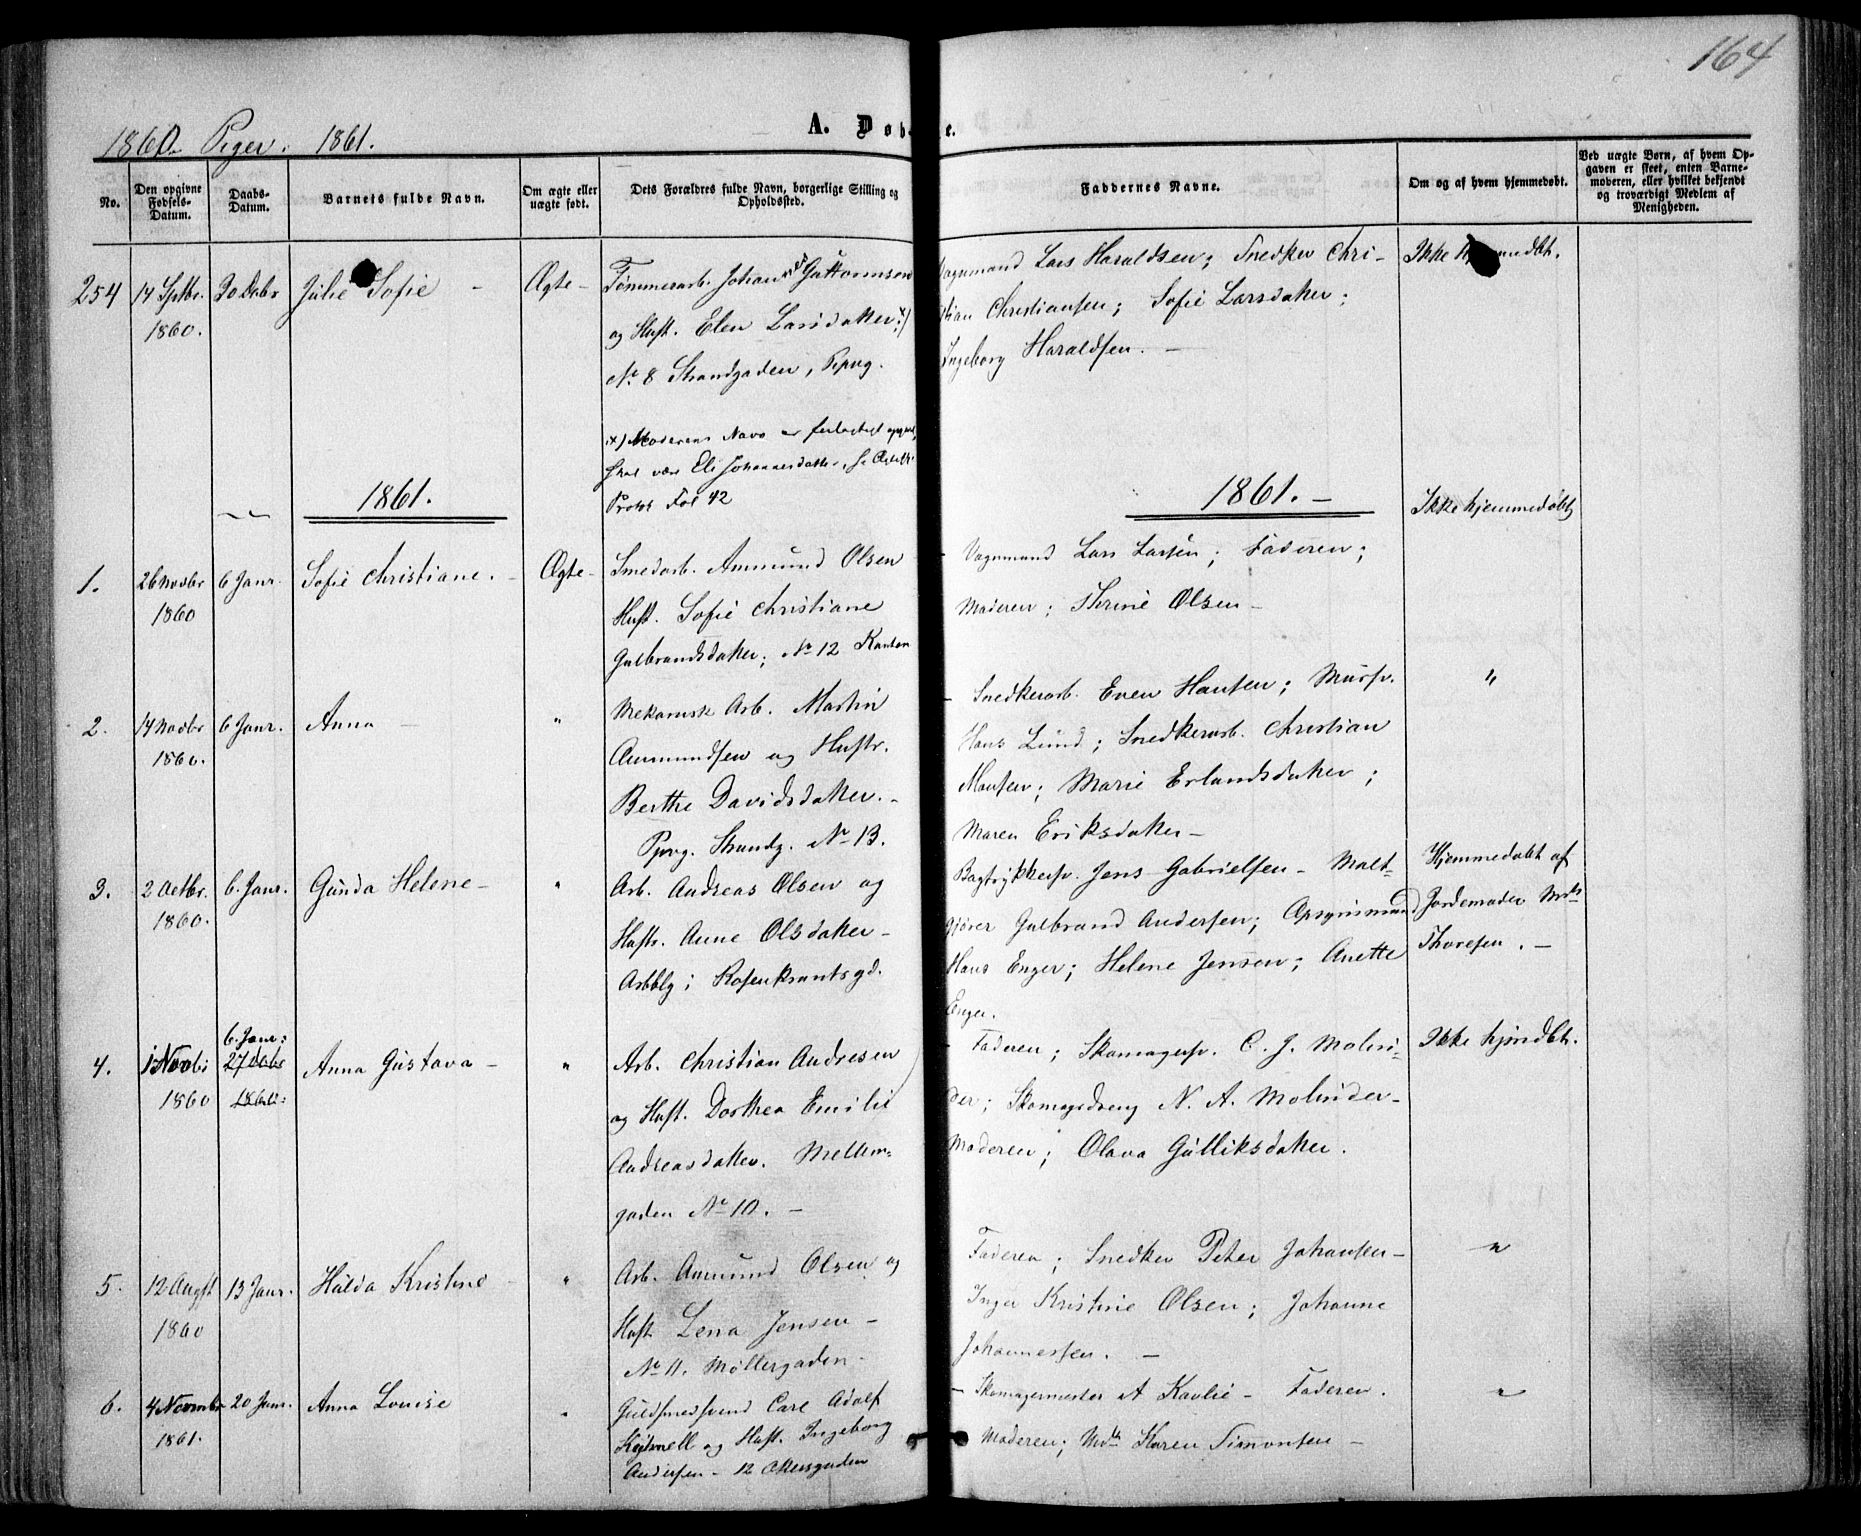 164
1860. Piger. 1861.
A. Døb te.
No.
Den opgivne Fødsels-Datum.
Daabs-Datum.
Barnets fulde Navn.
Om ægte eller uægte født.
Dets Forældres fulde Navn, borgerlige Stilling og Opholdssted.
Faddernes Navne.
Om og af hvem hjemmedøbt.
Ved uægte Børn, af hvem Opgaven er skeet, enten Barnemoderen, eller hvilket bekjendt og troværdigt Medlem af Menigheden.
254
14 Septbr.
1860.
30 Debr
Julie Sofie
Ægte
Tømmerarb. Johan Guttormsen
og Hust. Elen Larsdatter x)
No. 8 Strandgaden, Pipvg.
x) Moderens Navn er
skal være Eli Johannesdatter, se
Protok Fol 42
Vognmand Lars Haraldsen; Snedker Chri-
stian Christiansen; Sofie Larsdatter;
Ingeborg Haraldsen.
Ikke Hjemmedbt.
1861.
1861.
1.
26 Novbr
1860
6 Janr.
Sofie Christiane.
Ægte
Smedarb. Ammund Olsen
Hust. Sofie Christiane
Gulbrandsdatter; No 12 Kanten
Vognmand Lars Larsen; Faderen;
Moderen; Thrine Olsen
Ikke hjemmedøbt
2.
14 Novbr
1860.
6 Janr.
Anna
"
Mekanisk Arb. Martin
Ammundsen og Hustr.
Berthe Davidsdatter.
Ppvg. Strandg. No 13.
Snedkerarb. Even Hansen; Mursv.
Hans Lund; Snedkerarb. Christian
Hansen; Marie Erlandsdatter;
Maren Eriksdatter
"
3.
2 Octbr.
1860.
6. Janr.
Gunda Helene
"
Arb. Andreas Olsen og
Hustr. Anne Olsdatter
Arbblg i Rosenkrantsgd.
Bogtrykkersv. Jens Gabrielsen - Malt-
gjører Gulbrand Andersen; Opsynsmand
Hans Enger; Helene Jensen; Anette
Enger.
Hjemmedøbt af
Jordemoder Mds
Thoresen.
4.
1 Novbr
1860
6. Janr:
Anna Gustava
"
Arb. Christian Andresen
og Hust. Dorthea Emilie
Andreasdatter. Mellem-
gaden No 10.
Faderen; Skomagersv. C. J. Molin-
der; Skomagerdreng N. A. Molinder
Moderen; Olava Gulliksdatter.
Ikke hjmdbt.
5.
12 Augst
1860
13 Janr.
Hulda Kristine
"
Arb. Ammund Olsen og
Hust. Lena Jensen
No 11. Møllergaden
Faderen; Snedker Peter Johansen
Inger Kristine Olsen; Johanne
Johannessen.
"
6.
4 Novmbr
1861.
20 Janr.
Anna Louise
"
Guldsmedsvend Carl Adolf
og Hust. Ingeborg
Andersen - 12 Akersgaden
Skomagermester A Kavlie - Faderen.
Moderen; Md Karen Simonsen
"